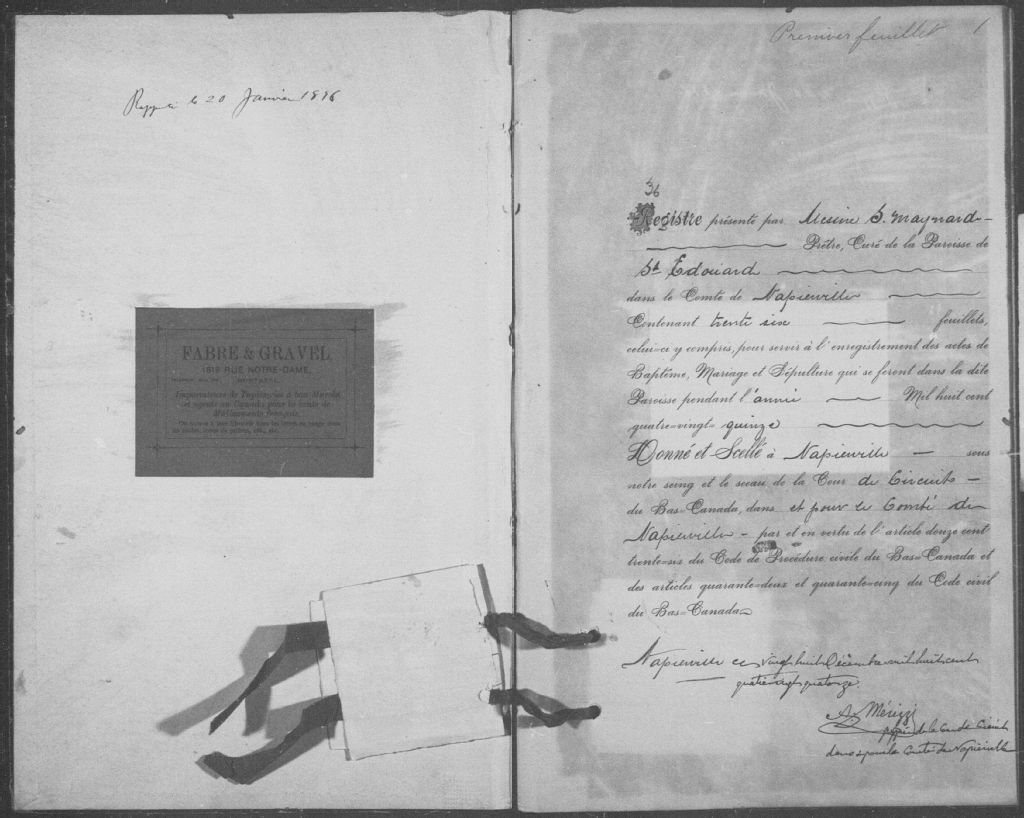 le 20 Janvier 1896
FABRE & GRAVEL
1619 RUE NOTRE-DAME,
Importateurs de Tapisseries à bon Marché
et agents au Canada pour la vente de
Médicaments français.
Premier feuillet 1
36
Registre présenté par Messire S. Maynard
Prêtre, Curé de la Paroisse de
St Edouard
dans le Comté de Napierville
Contenant trente six feuillets,
celui-ci y compris, pour servir à l'enregistrement des actes de
Baptême, Mariage et Sépulture qui se feront dans la dite
Paroisse pendant l'année Mil huit cent
quatre-vingt-quinze
Donné et Scellé à Napierville sous
notre seing et le sceau de la Cour de Circuit
du Bas-Canada, dans et pour le Comté de
Napierville - par et en vertu de l'article douze cent
trente-six du Code de Procédure civile du Bas-Canada et
des articles quarante-deux et quarante-cinq du Code civil
du Bas-Canada
Napierville ce vingt huit Décembre mil huit cent
quatre vingt quatorze.
de la Cour de Circuit
dans & pour le Comté de Napierville